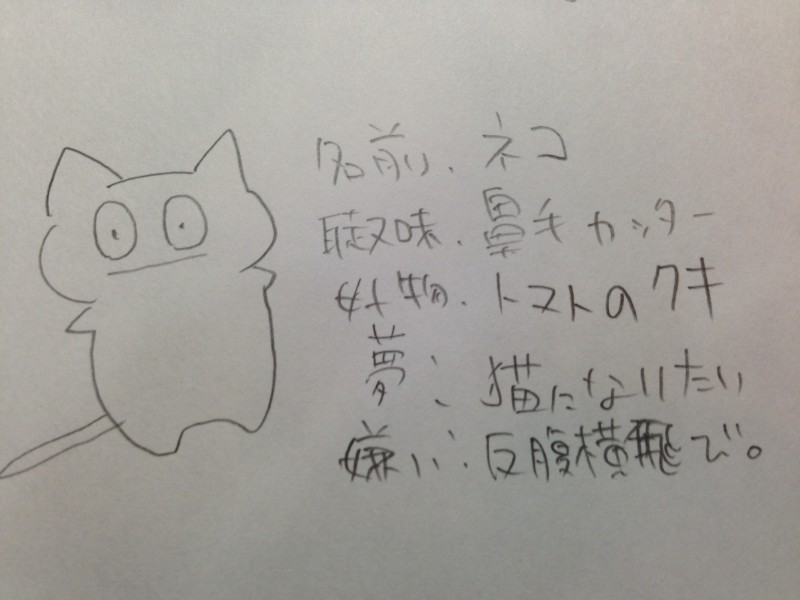 名前．ネコ
趣味．鼻毛カッター
好物．トマトのクキ
夢：猫になりたい
嫌い：反腹横飛び。